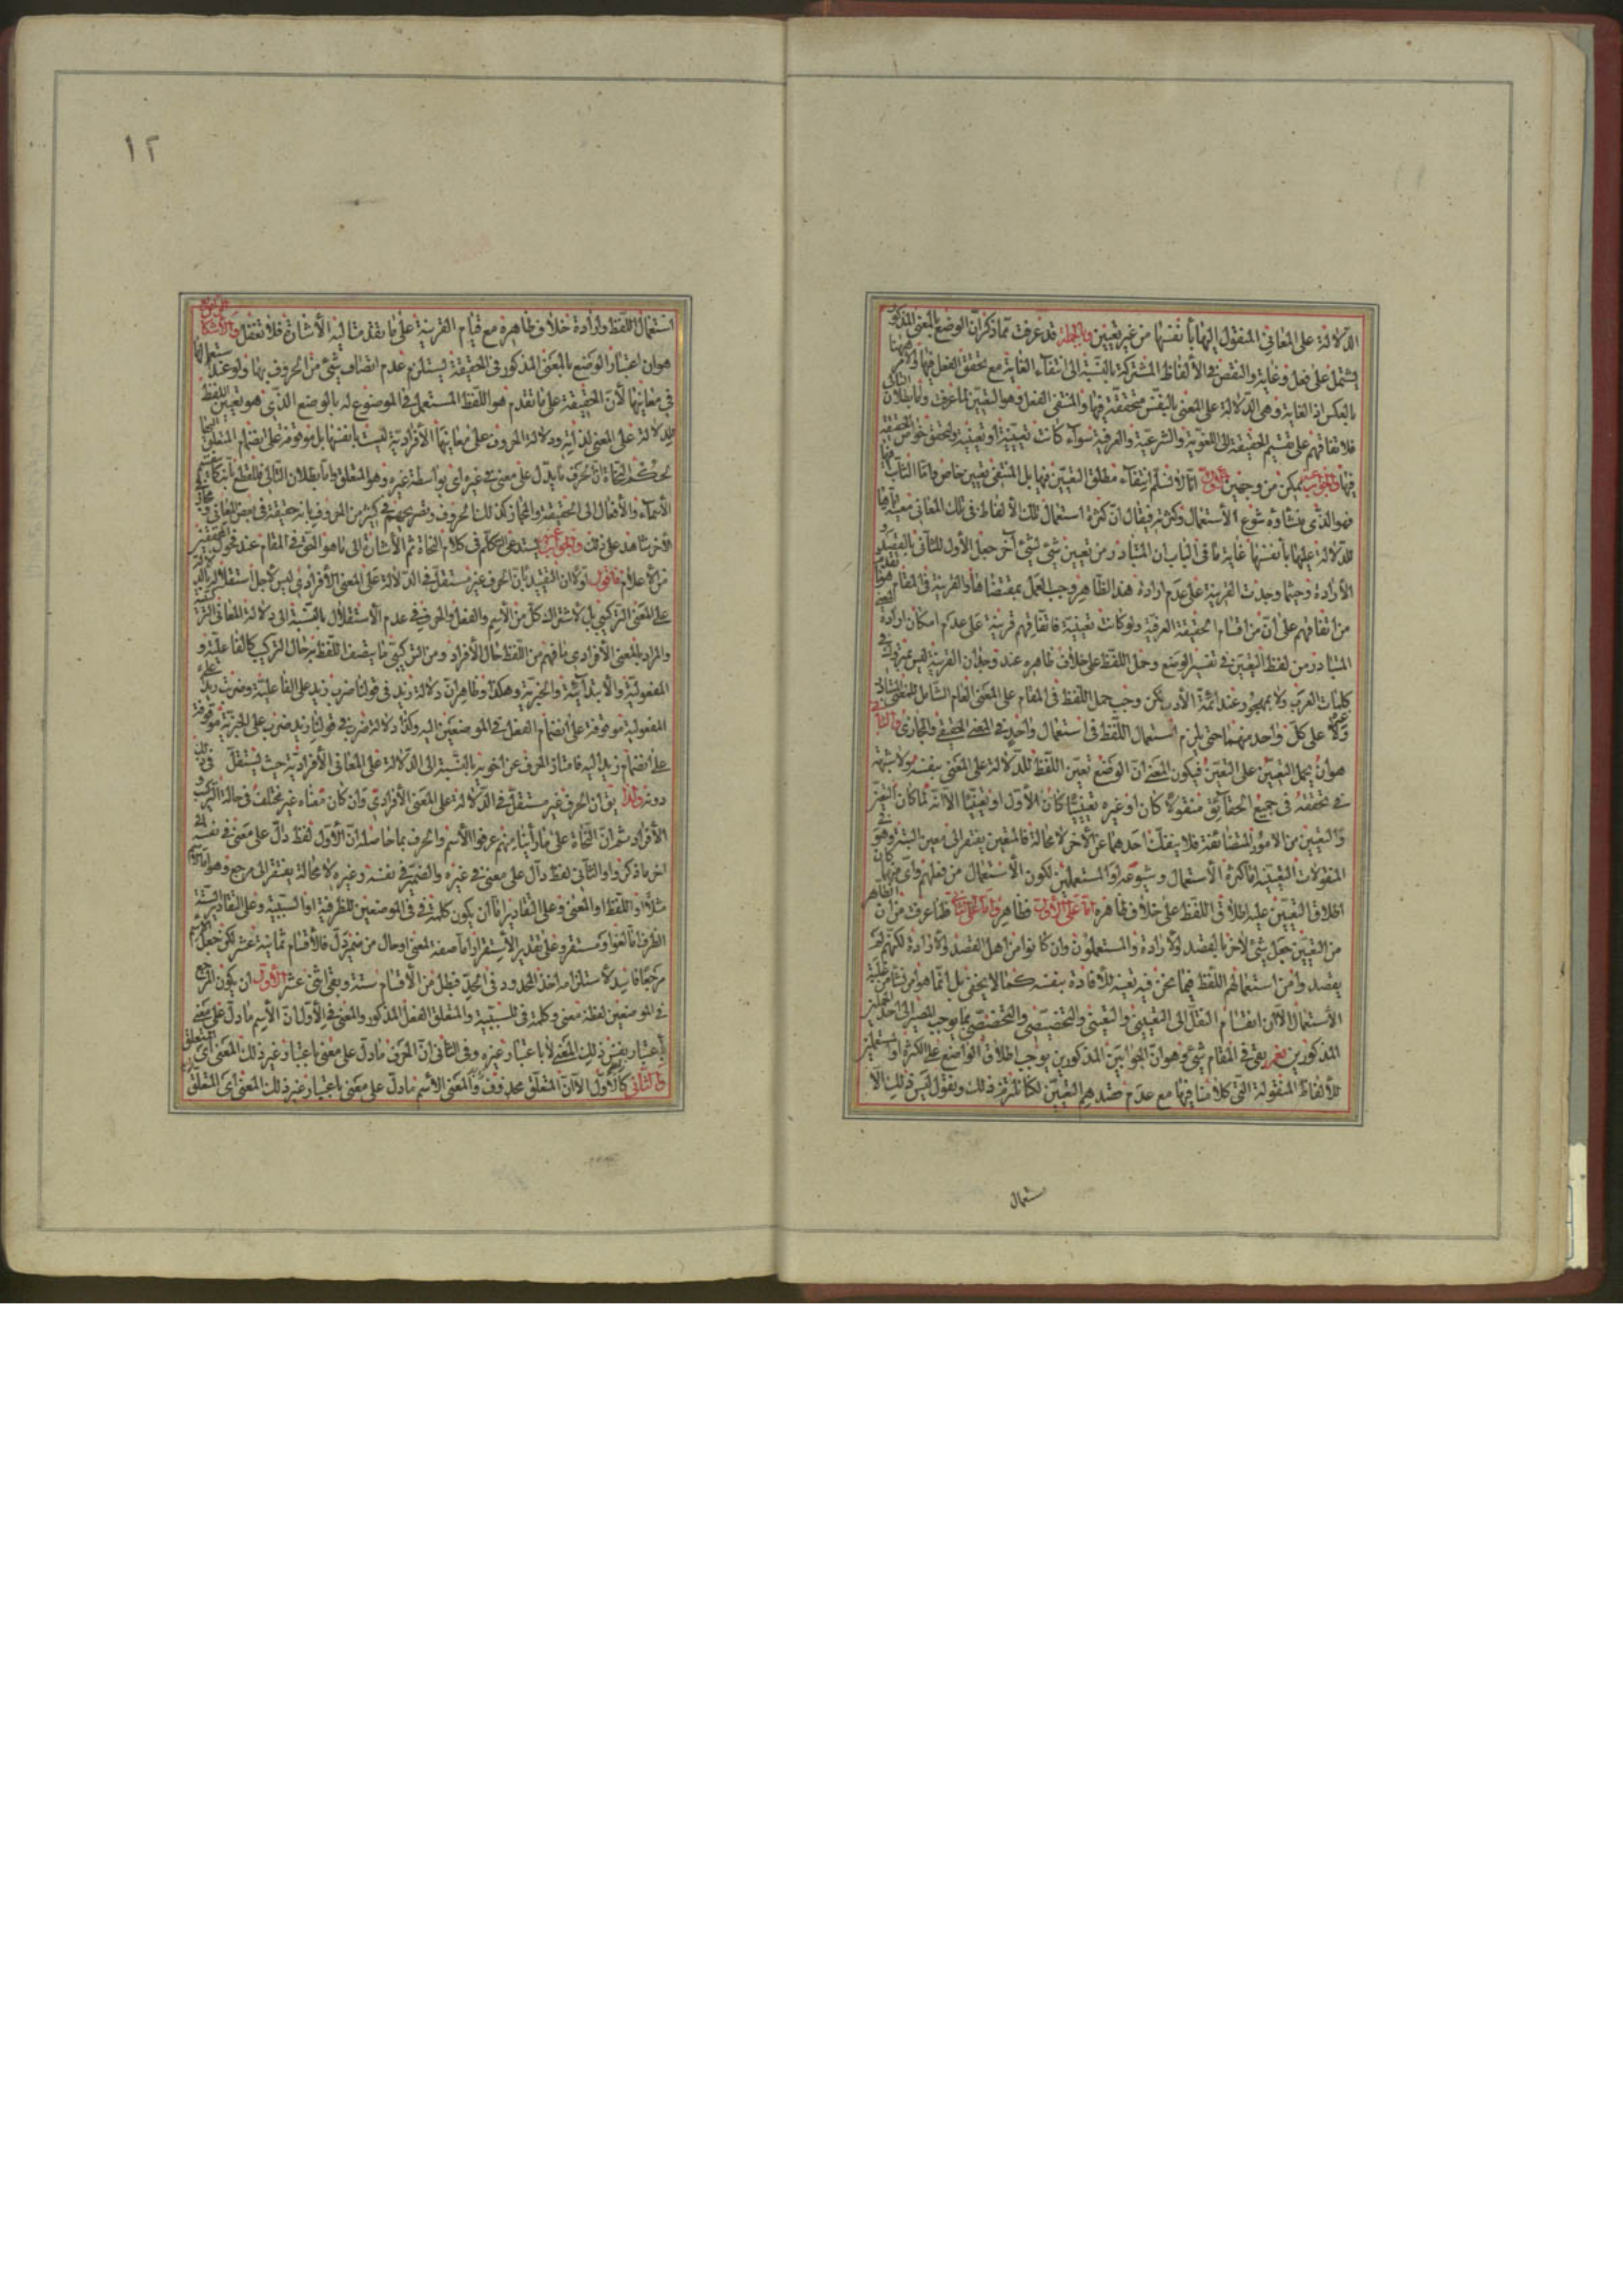 الدلالة على المعاني المنقول اليها بأنفسها من غير تعيين وبالجملة قد عرفت مما ذكر ان الوضع بالمعنى المذكور
يشتمل على فعل وغاية والنقض في الألفاظ المشتركة بالنسبة الى انتفاء الغاية مع تحقق الفعل فيها والأمر ههنا
بالعكس اذ الغاية وهي الدلالة على المعنى بالنفس متحققة فيها والمنتفى الفعل وهو التعيين لما عرفت واما بطلان التالي
فلاتفاقهم على تقسيم الحقيقة الى اللغوية والشرعية والعرفية سواء كانت تعيينية او تعينية ولتحقق خواص الحقيقة
فيها والجواب يمكن من وجهين الأول انا لا نسلم انتفاء مطلق التعيين فيها بل المنتفى تعيين خاص واما التعيين
فهو الذي منشاؤه شيوع الأستعمال وكثرته فيقال ان كثرة استعمال تلك الألفاظ في تلك المعاني
للدلالة عليها بأنفسها غاية ما في الباب ان المتبادر من تعيين شئ لشئ آخر جعل الأول للثاني بالقصد و
الأرادة وحيثما وجدت القرينة على عدم ارادة هذا الظاهر وجب العمل بمقتضاها والقرينة في المقام
من اتفاقهم على ان من اقسام الحقيقة العرفية ولو كانت تعينية فاتفاقهم قرينة على عدم امكان ارادة
المتبادر من لفظ التعيين في تفسير الوضع وحمل اللفظ على خلاف ظاهره عند وجدان القرينة ليس بعزيز في
كلمات العرب ولا بمهجور عند ائمة الأدب لكن وجب حمل اللفظ في المقام على المعنى العام الشامل
على كل واحد منهما حتى يلزم استعمال اللفظ في استعمال واحد في المعنى الحقيقي والمجازي والثاني
هو ان يحمل التعيين على التعين فيكون المعنى ان الوضع تعين اللفظ للدلالة على المعنى بنفسه ولا شبهة
في تحققه في جميع الحقايق منقولا كان او غيره تعيينيا كان الأول او تعينيا الا انه لما كان التعين
والتعيين من الامور المتضائفة فلا ينفك احدهما عن الأخر لا محالة فالمتعين يفتقر الى معين البتة وهو في
المنقولات التعينية اما كثرة الأستعمال وشيوعه او المستعملين لكون الأستعمال من فعلهم وايا ما كان
اطلاق التعيين عليه اطلاق اللفظ على خلاف ظاهره اما على الأول فظاهر واما على الثاني فلما عرفت من ان الظاهر
من التعيين جعل شئ لآخر بالقصد والأرادة والمستعملون وان كانوا من اهل القصد والأرادة لكنهم لم
يقصدوا من استعمالهم اللفظ فيما نحن فيه تعينه للأفادة بنفسه كما لا يخفى بل انما هو امر نشأ من غلبة
الأستعمال الا ان انقسام النقل الى التعييني والتعيني والتخصيصي والتخصصي مما يوجب المصير الى احد
المذكورين نعم بقى في المقام شئ وهو ان الجوابين المذكورين يوجب اطلاق الواضع على الكثرة او المستعملين
للألفاظ المنقولة التي كلامنا فيها مع عدم قصدهم التعيين لكنا نلتزم ذلك ونقول ليس ذلك الا
ستعمال
١٢
استعمال اللفظ وارادة خلاف ظاهره مع قيام القرينة على ما تقدمت اليه الأشارة فلا تغفل والأشكال الرابع
هو ان اعتبار الوضع بالمعنى المذكور في الحقيقة يستلزم عدم اتصاف شئ من الحروف بها ولو عند استعمالها
في معانيها لأن الحقيقة على ما تقدم هو اللفظ المستعمل في الموضوع له بالوضع الذي هو تعيين اللفظ
للدلالة على المعنى لذاته ودلالة الحروف على معانيها الأفرادية ليست بانفسها بل موقوفة على انضمام المتعلق
لحكم النحاة بأن الحرف ما يدل على معنى في غيره اى بواسطة غيره وهو المتعلق واما بطلان التالي فللقطع بأنه كما تنقسم
الأسماء والأفعال الى الحقيقة والمجاز كذلك الحروف وتصريحهم في كثير من الحروف بانه حقيقة في بعض المعاني ومجاز في
الأخر شاهد على ذلك والجواب يستدعي التكلم في كلام النحاة ثم الأشارة الى ما هو الحق في المقام عند
من الأعلام فاقول اولا ان التقييد بأن الحرف غير مستقل في الدلالة على المعنى الأفرادي ليس لاجل استقلاله
على المعنى التركيبي بل لاشتراك كل من الأسم والفعل والحرف في عدم الأستقلال بالنسبة الى دلالة المعاني التركيبية
والمراد بالمعنى الأفرادي ما فهم من اللفظ حال الأفراد ومن التركيبي ما يتصف اللفظ به حال التركيب كالفاعلية و
المفعولية والأبتدائية والخبرية وهكذا وظاهر ان دلالة زيد في قولنا ضرب زيد على الفاعلية وضربت زيدا على
المفعولية موقوفة على انضمام الفعل في الموضعين اليه وكذا دلالة ضرب في قولنا زيد ضرب على الخبرية موقوفة
على انضمام زيد اليه فامتاز الحرف عن اخويه بالنسبة الى الدلالة على المعاني الأفرادية حيث يستقل في ذلك
دونه ولذا يق ان الحرف غير مستقل في الدلالة على المعنى الأفرادي وان كان معناه غير مختلف في حالة التركيب و
الأفراد ثم ان النحاة على ما رأينا منهم عرفوا الأسم والحرف بما حاصله ان الأول لفظ دال على معنى في نفسه الى
اخر ما ذكروا والثاني لفظ دال على معنى في غيره والضمير في نفسه وغيره لا محالة يفتقر الى مرجع وهو اما
مثلا او اللفظ او المعنى وعلى التقادير اما ان يكون كلمة في في الموضعين للظرفية او السببية وعلى التقادير الستة
الظرف اما لغو او مستقر وعلى تقدير الأستقرار اما صفة لمعنى او حال من ضمير دل فالأقسام ثمانية عشر لكن جعل
مرجعا فاسد لاستلزامه اخذ المحدود في الحد فبطل من الأقسام ستة وبقى اثنى عشر الأول ان يكون المرجع
في الموضعين لفظة معنى وكلمة في للسببية والمتعلق الفعل المذكور والمعنى في الأول ان الأسم ما دل على معنى
بأعتبار نفس ذلك المعنى لا باعتبار غيره وفي الثاني ان الحرف ما دل على معنى باعتبار غير ذلك المعنى اى المتعلق
والثاني كالأول الا ان المتعلق محذوف والمعنى الأسم ما دل على معنى باعتبار غير ذلك المعنى اى المتعلق